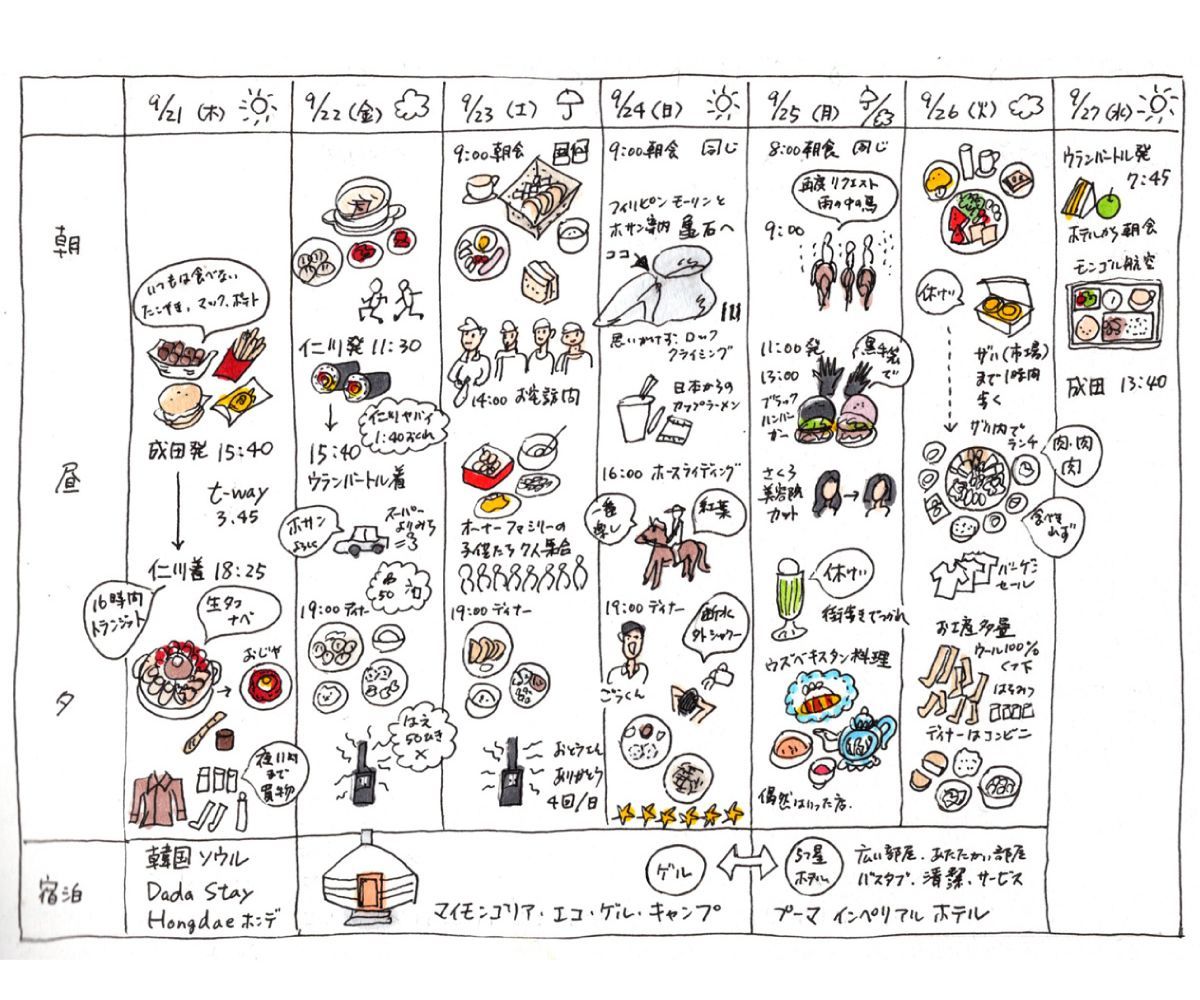 9/21 (木)
9/22 (金)
9/23 (土)
9/24 (日)
9/25 (月)
9/26 (火)
9/27 (水)
朝
昼
夕
宿泊
いつもは食べない
たこやき、マック、ポテト
成田発 15:40
t-way
3.45
仁川着 18:25
16時間
トランジット
生タコ
ナベ
おじや
夜11時
まで
買物
仁川発 11:30
仁川ヤバイ
1:40おくれ
15:40
ウランバートル着
ボサン
よろしく
スーパー
よりみち
19:00 ディナー
はえ
50ひき
×
9:00 朝食
14:00 お宅訪問
オーナーファミリーの
子供たち 7人集合
19:00 ディナー
おとうさん
ありがとう
4回/日
9:00 朝食 同じ
フィリピン モーリンと
ボサン案内 亀石へ
ココ
思いがけず ロック
クライミング
日本からの
カップラーメン
16:00 ホースライディング
一番
楽し
紅葉
19:00 ディナー
断水
外シャワー
ごうくん
8:00 朝食 同じ
再度リクエスト
雨の中の馬
9:00
11:00 発
13:00
ブラック
ハンバー
ガー
黒手袋
で
さくら
美容院
カット
休けい
街歩きでつかれ
ウズベキスタン料理
偶然はいった店.
休けい
ザハ(市場)
まで1時間
歩く
ザハ内で
ランチ
肉・肉
肉
食べき
れず
バーゲン
セール
お土産多量
ウール100%
くつ下
はちみつ
ディナーはコンビニ
ウランバートル発
7:45
ホテルから朝食
モンゴル航空
成田 13:40
韓国 ソウル
Dada Stay
Hongdae ホンデ
マイモンゴリア・エコ・ゲル・キャンプ
ゲル
5つ星
ホテル
広い部屋、あたたかい部屋
バスタブ、清潔、サービス
プーマ インペリアル ホテル